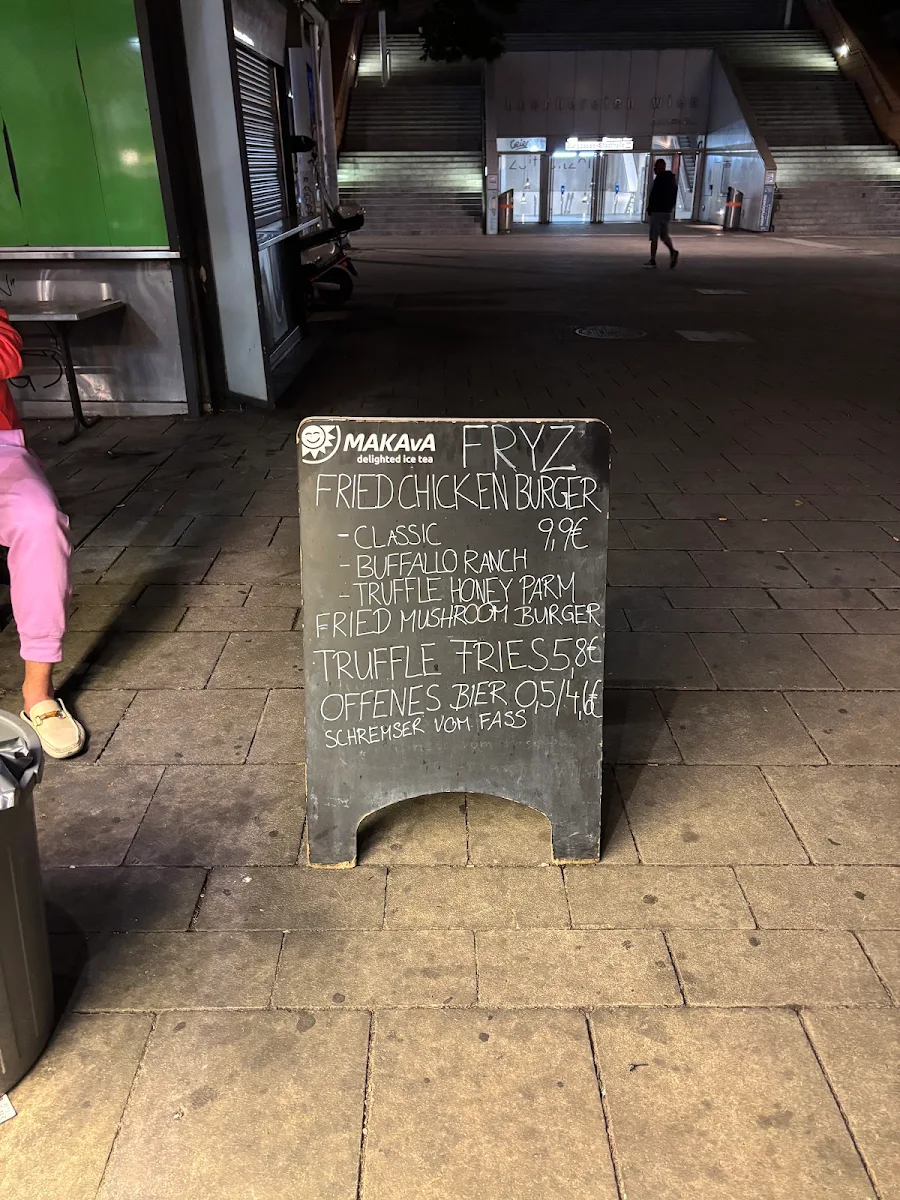 buechereien wien
MAKAvA
delighted ice tea
FRYZ
FRIED CHICKEN BURGER
- CLASSIC 9,9€
- BUFFALLO RANCH
- TRUFFLE HONEY PARM
FRIED MUSHROOM BURGER
TRUFFLE FRIES 5,8€
OFFENES BIER 0,5/4,6€
SCHREMSER VOM FASS